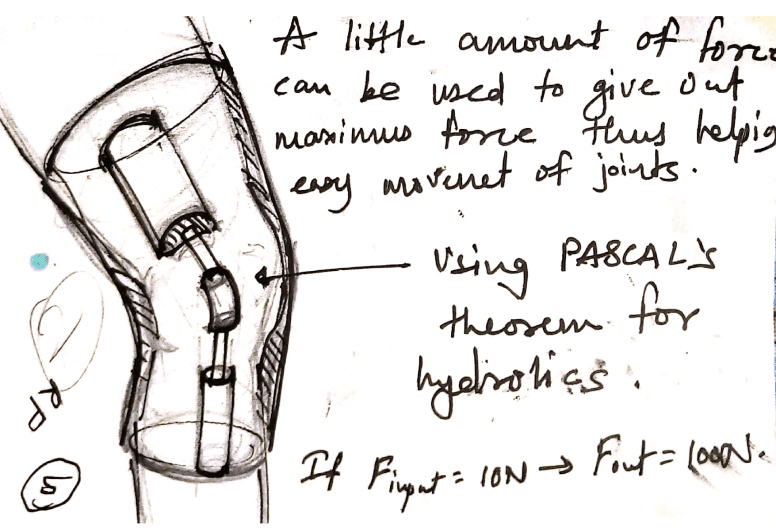 A little amount of force
can be used to give out
maximus force thus helpig
easy movenet of joints.
Using PASCAL's
theorem for
hydrolics.
If Finput = 10N → Fout = 1000N.
5